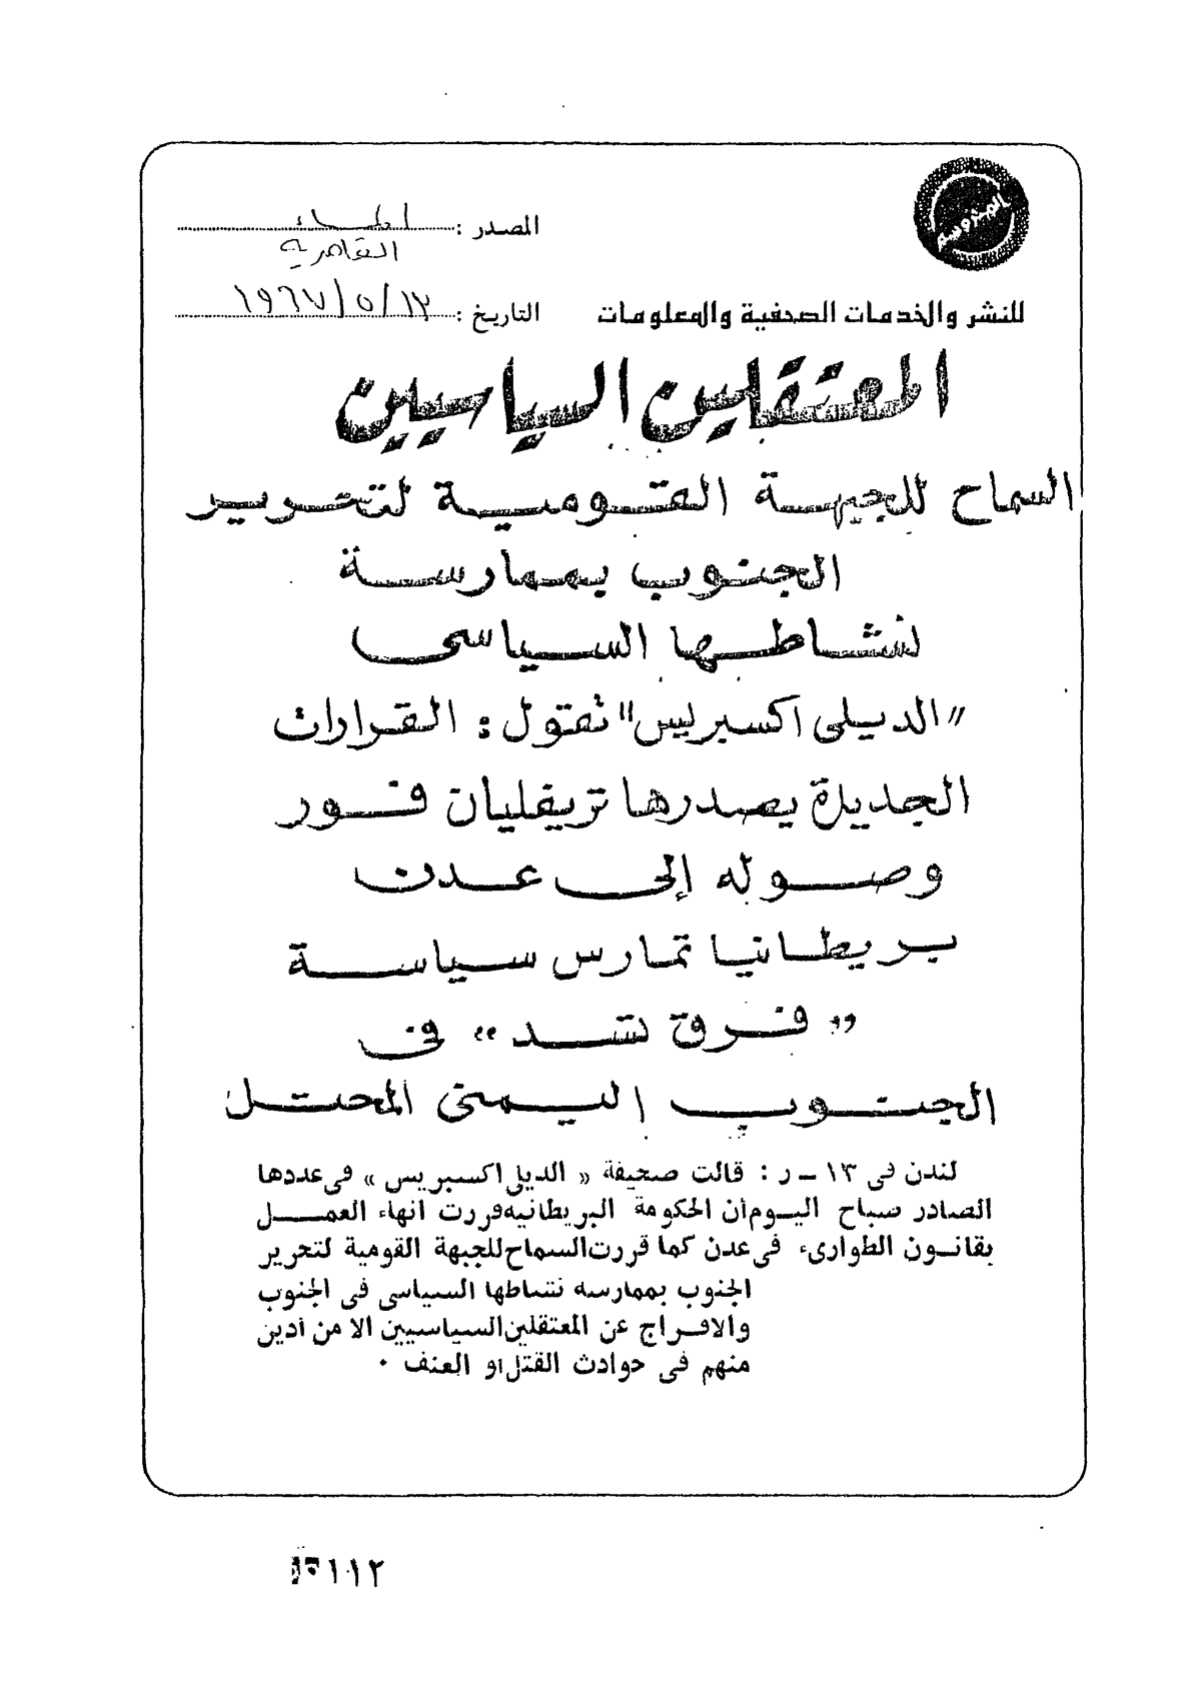 المحروسة
المصدر : المساء
القاهرية
للنشر والخدمات الصحفية والمعلومات
التاريخ : ١٣/٥/١٩٦٧
المعتقلين السياسيين
السماح للجبهة القومية لتحرير
الجنوب بممارسة
نشاطها السياسى
"الديلى اكسبريس" تقول : القرارات
الجديدة يصدرها تريفليان فور
وصوله إلى عدن
بريطانيا تمارس سياسة
" فرق تسد " فى
الجنوب اليمنى المحتل
لندن فى ١٣ – ر : قالت صحيفة « الديلى اكسبريس » فى عددها
الصادر صباح اليوم أن الحكومة البريطانيه قررت انهاء العمل
بقانون الطوارىء فى عدن كما قررت السماح للجبهة القومية لتحرير
الجنوب بممارسه نشاطها السياسى فى الجنوب
والافراج عن المعتقلين السياسيين الا من أدين
منهم فى حوادث القتل او العنف ٠